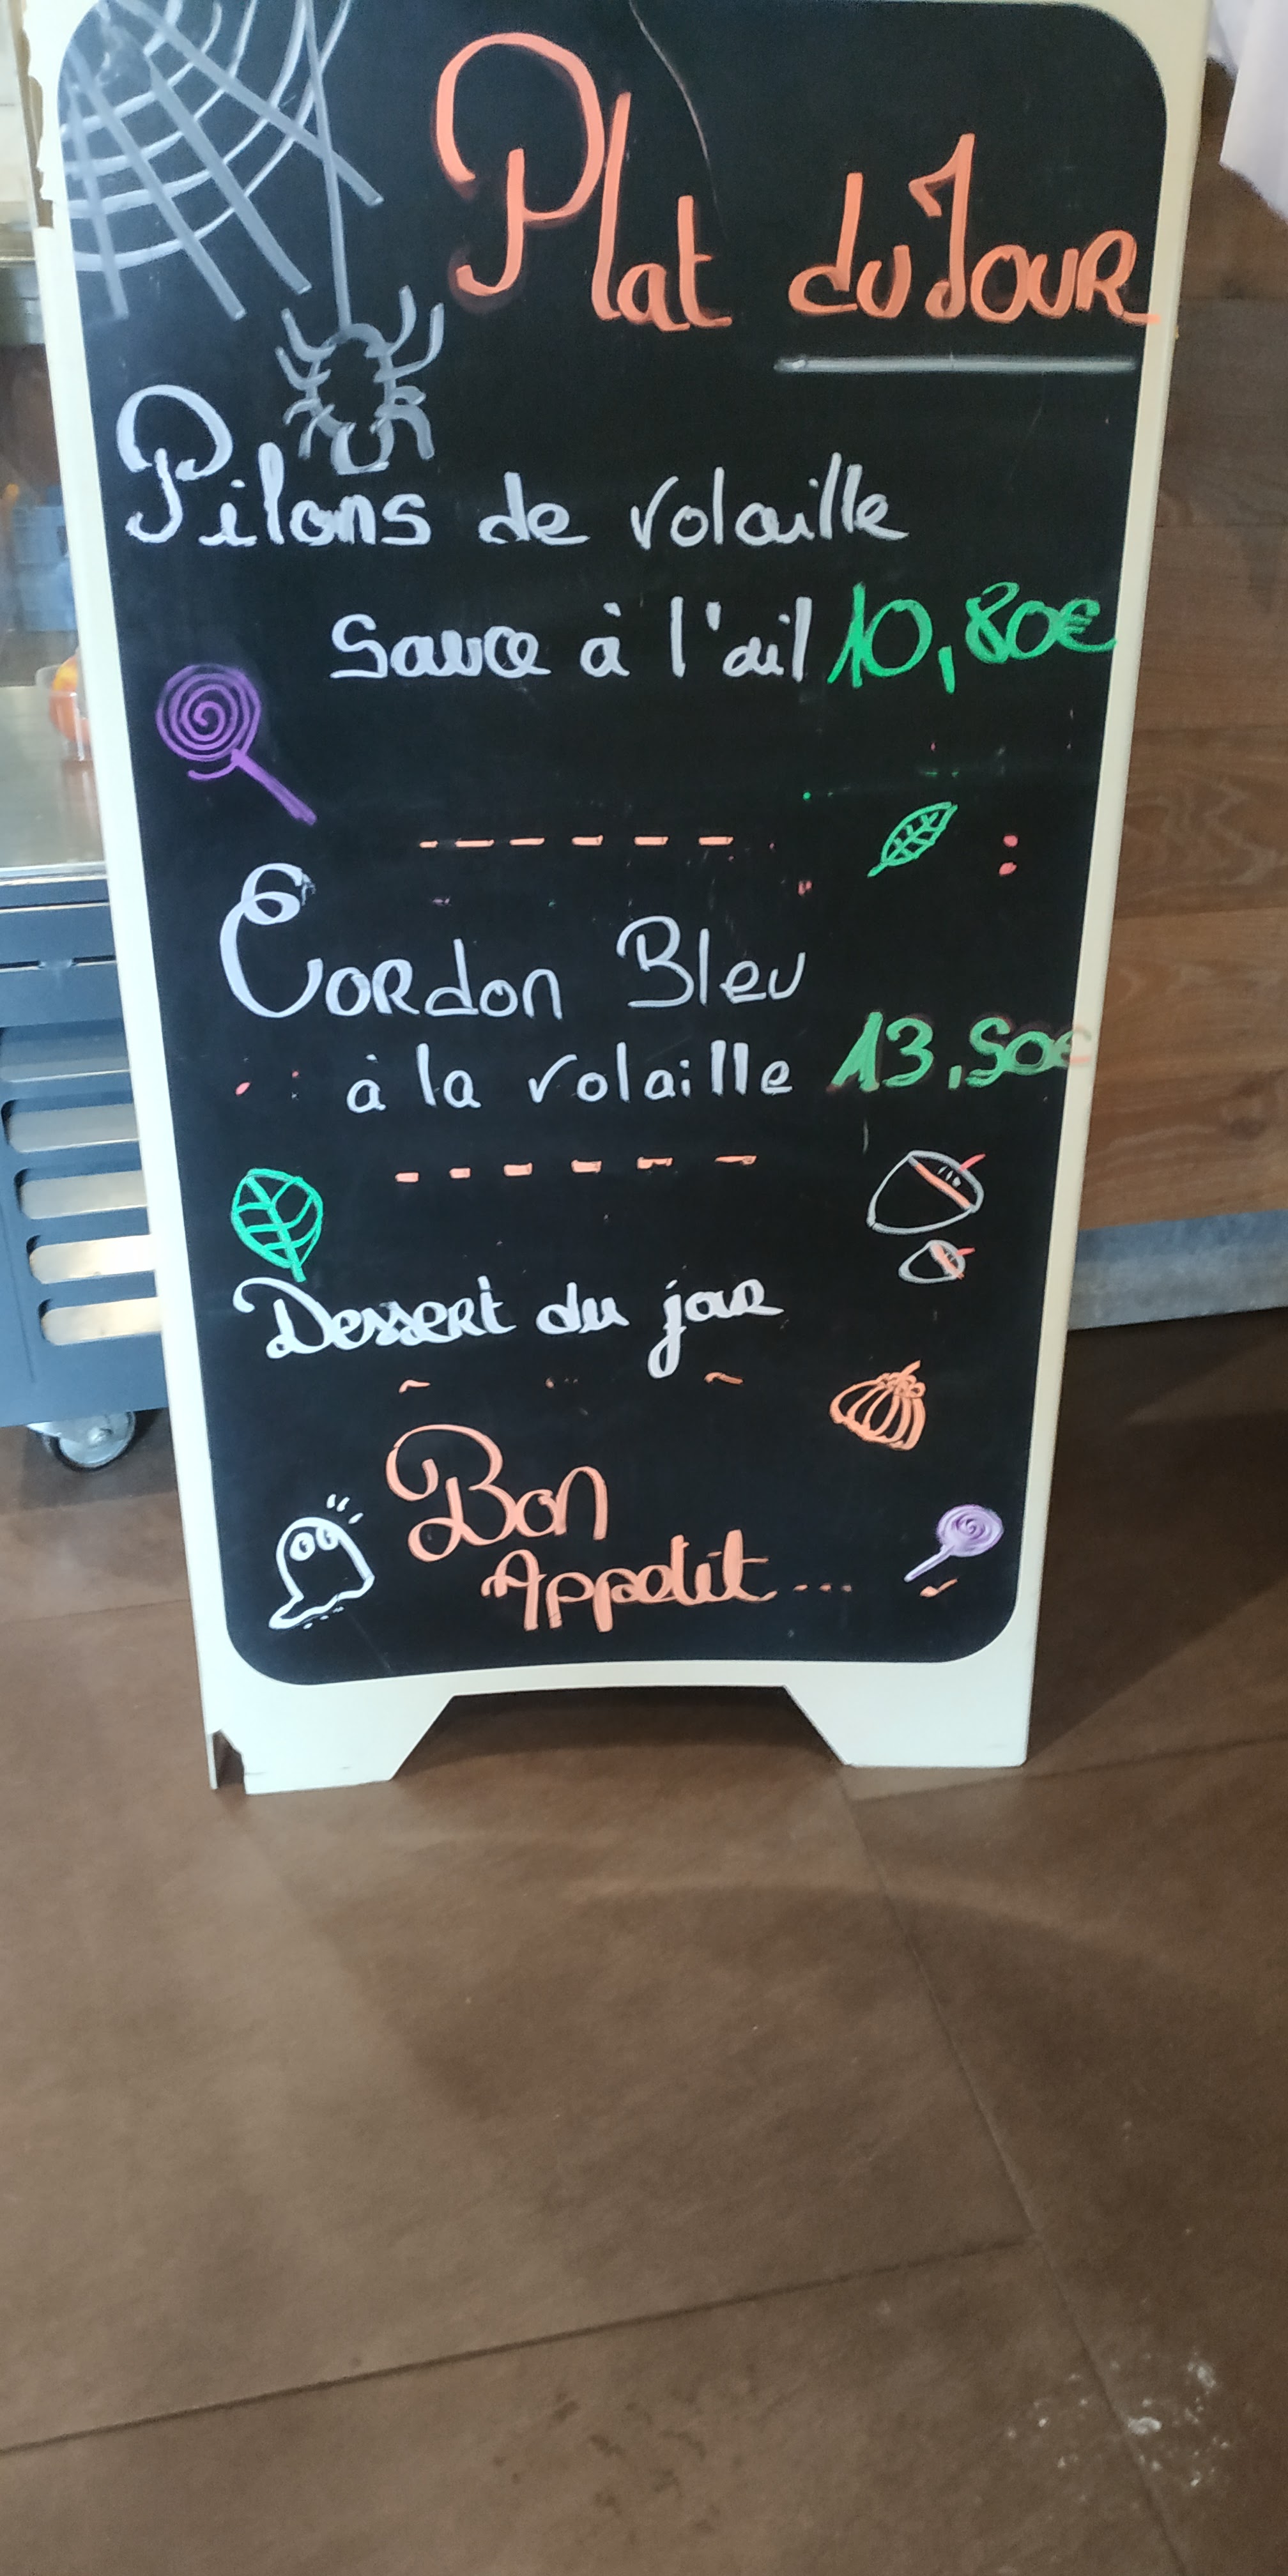 Plat du Jour
Pilons de volaille
Sauce à l'ail 10,80€
Cordon Bleu
à la volaille 13,50€
Dessert du jour
Bon
Appetit...